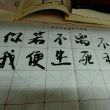 似若不出不
我便生死